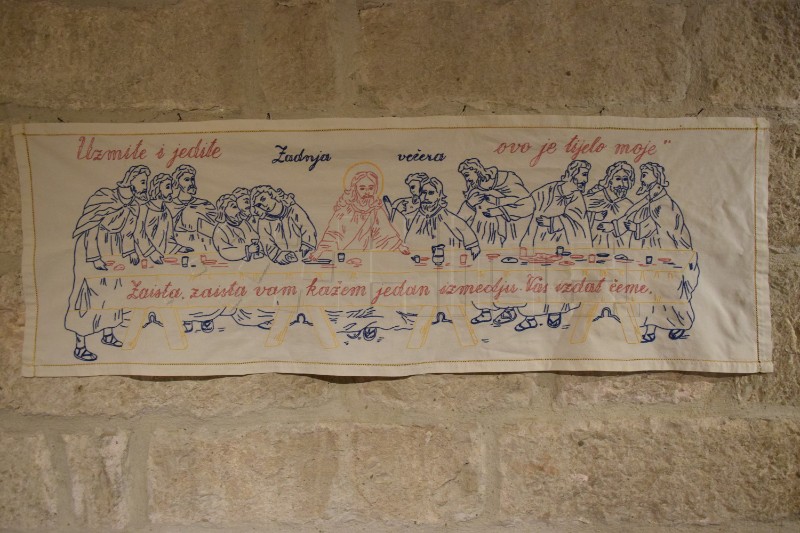 Uzmite i jedite Zadnja večera ovo je tijelo moje"
Zaista, zaista vam kažem jedan izmedju Vas izdat ćeme.